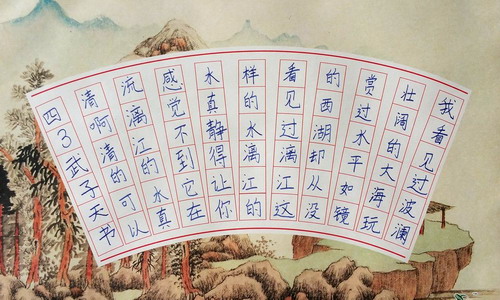 我看见过波澜
壮阔的大海玩
赏过水平如镜
的西湖却从没
看见过漓江这
样的水漓江的
水真静得让你
感觉不到它在
流漓江的水真
清啊清的可以
四3武子天书